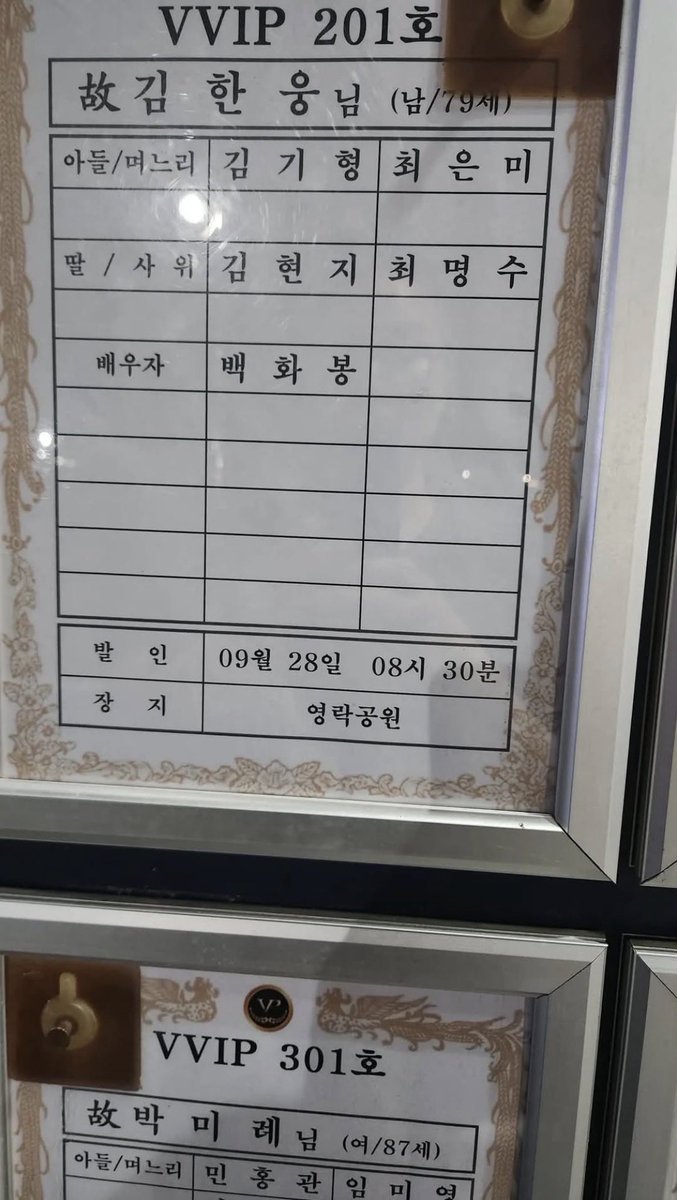 VVIP 201호
故 김 한 웅 님 (남/79세)
아들/며느리 김 기 형 최 은 미
딸 / 사 위 김 현 지 최 명 수
배우자 백 화 봉
발 인 09월 28일 08시 30분
장 지 영락공원
VP
VVIP 301호
故 박 미 례 님 (여/87세)
아들/며느리 민 홍 관 임 미 영